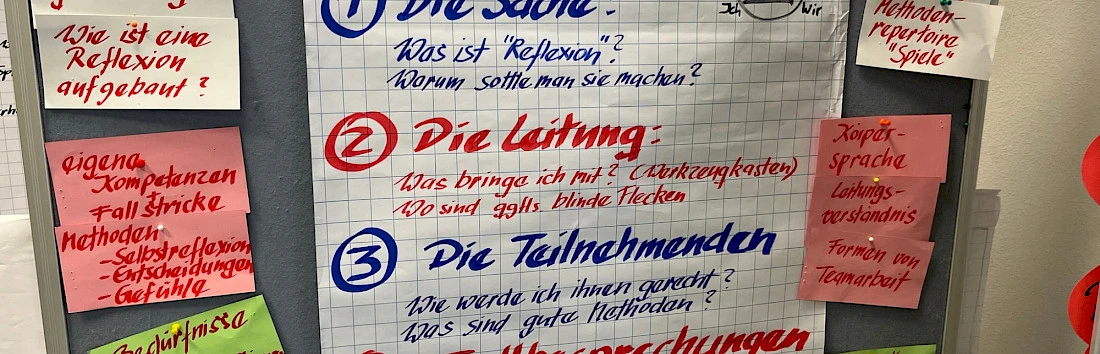 Wie ist eine
Reflexion
aufgebaut?
eigene
Kompetenzen
+
Fallstricke
Methoden
- Selbstreflexion
- Entscheidungen
- Gefühle
Bedürfnisse
1 Die Sache:
Was ist "Reflexion"?
Warum sollte man sie machen?
2 Die Leitung:
Was bringe ich mit? (Werkzeugkasten)
Wo sind ggfls blinde Flecken
3 Die Teilnehmenden
Wie werde ich ihnen gerecht?
Was sind gute Methoden?
Ich
Wir
Methoden-
repertoire
"Spiele"
Körper-
sprache
Leitungs-
verständnis
Formen von
Teamarbeit